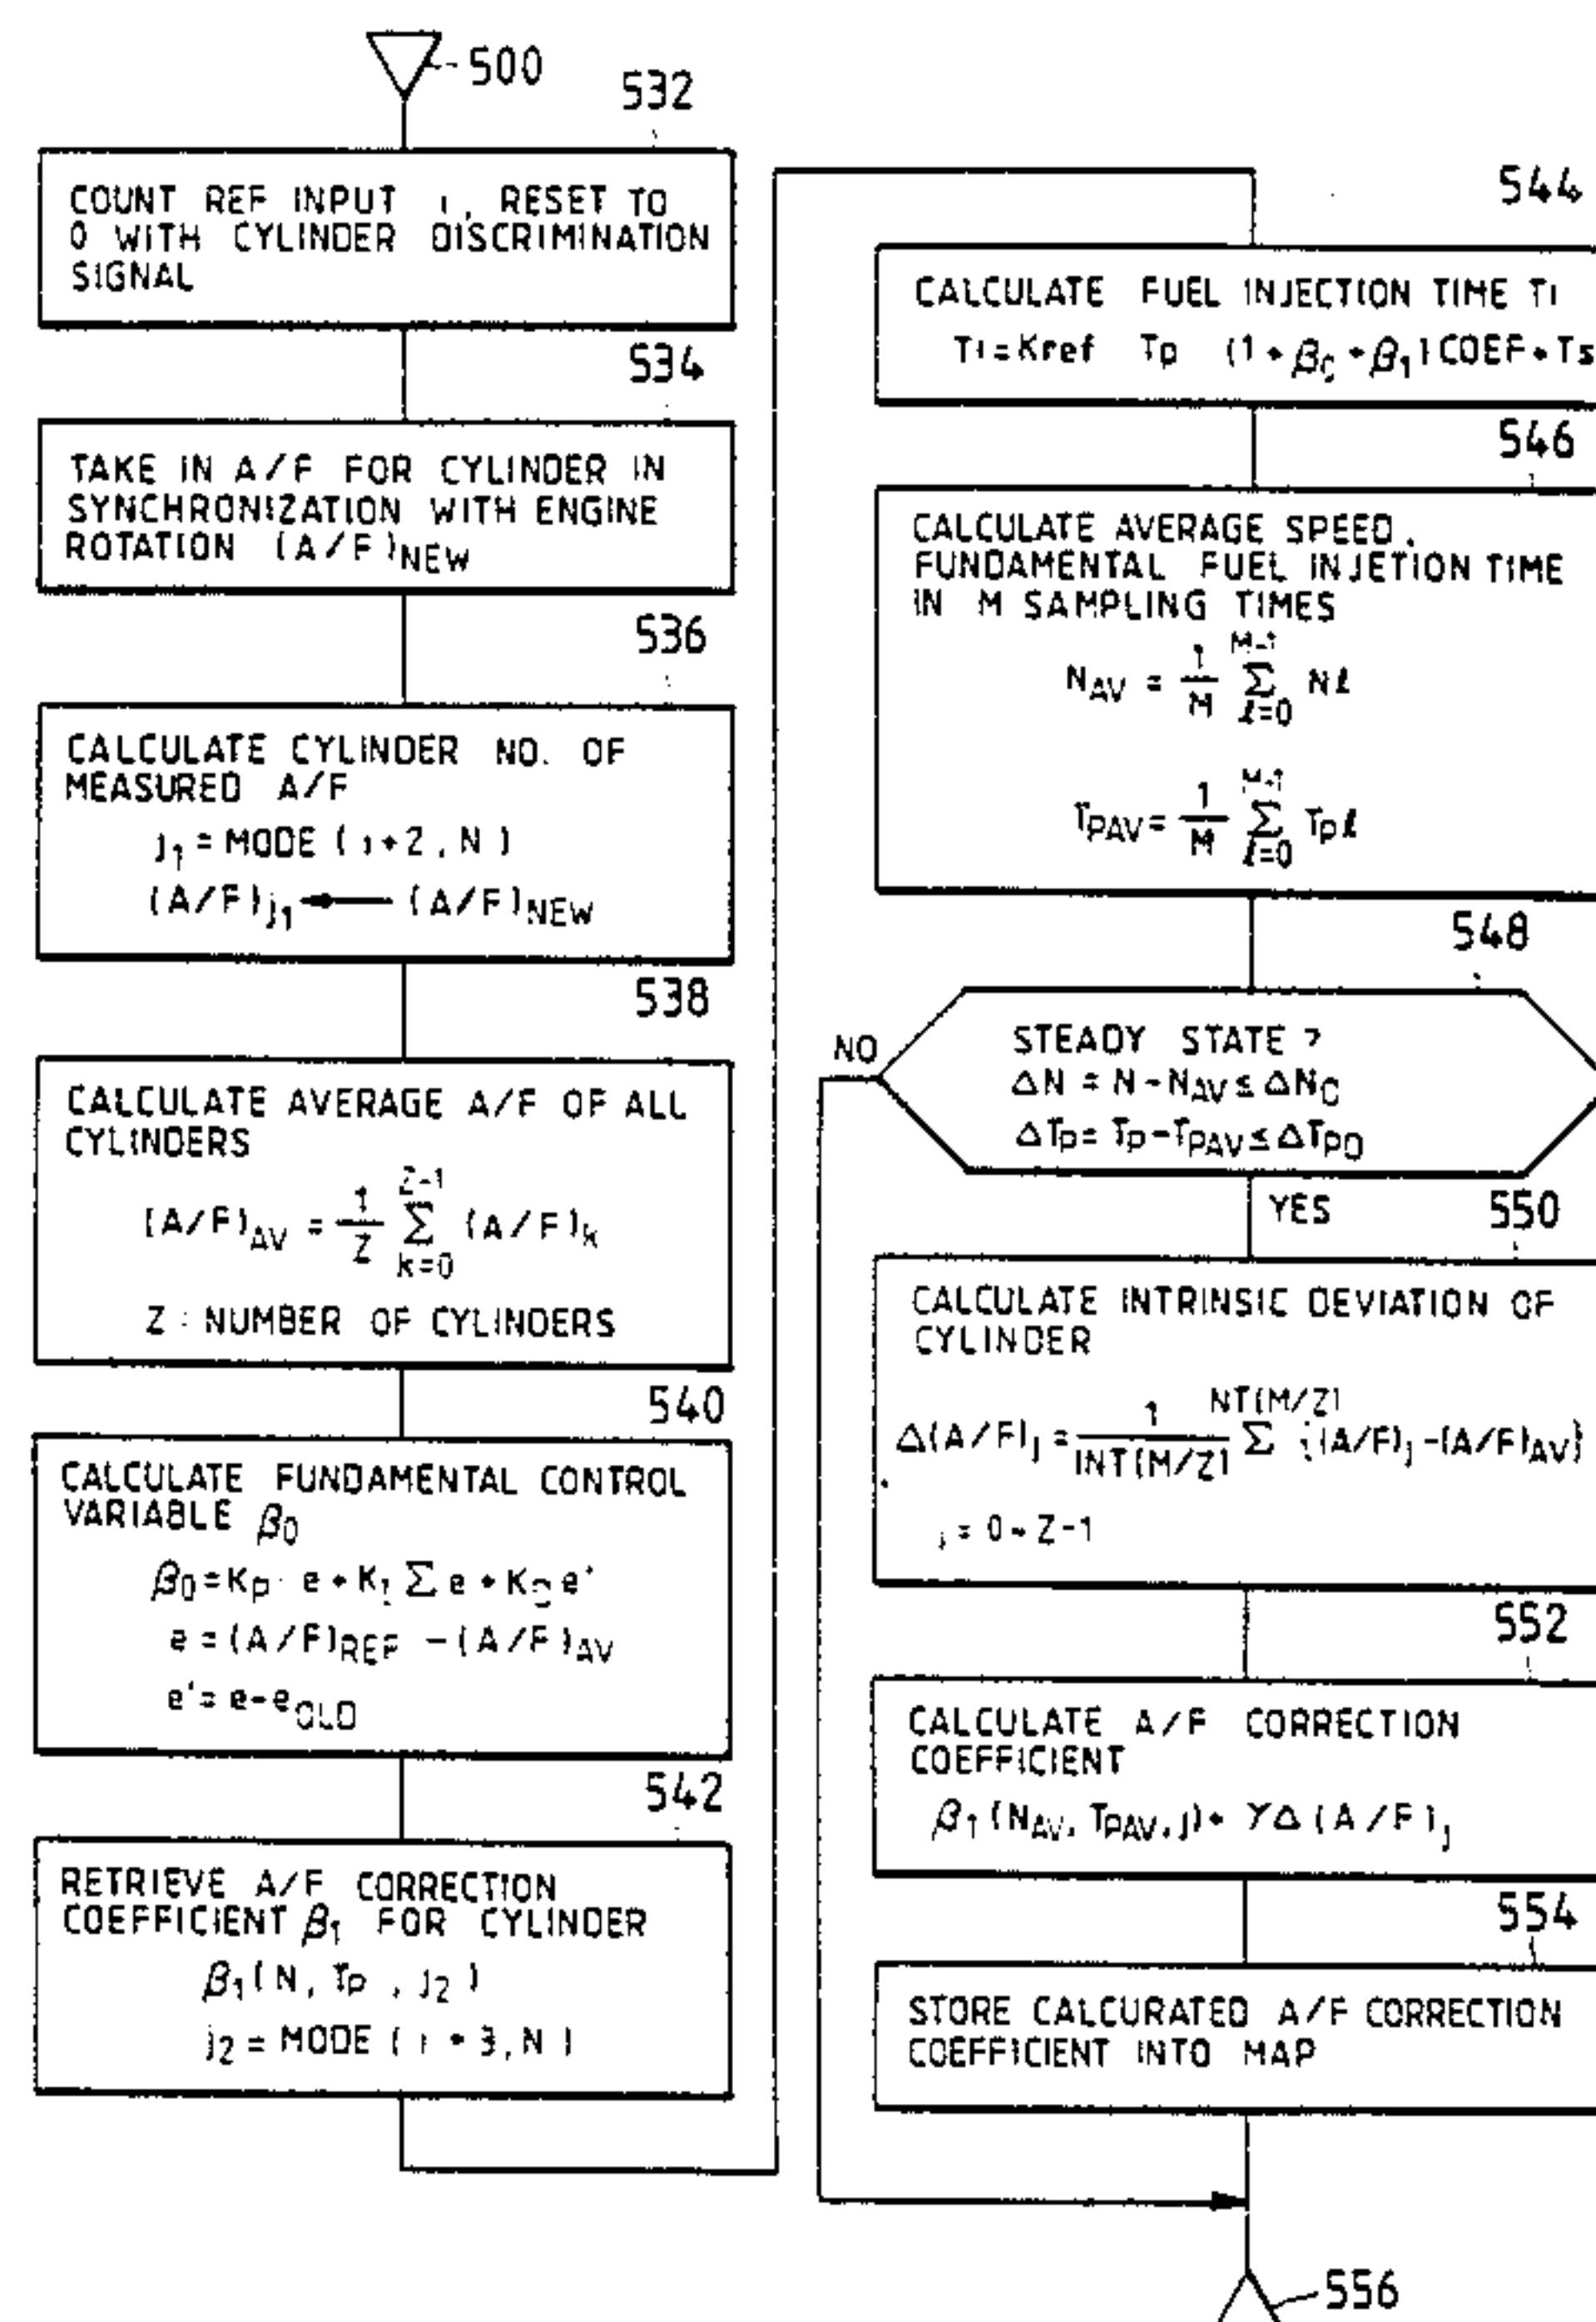 500
532
COUNT REF INPUT i, RESET TO
0 WITH CYLINDER DISCRIMINATION
SIGNAL
534
TAKE IN A/F FOR CYLINDER IN
SYNCHRONIZATION WITH ENGINE
ROTATION (A/F)NEW
536
CALCULATE CYLINDER NO. OF
MEASURED A/F
j1 = MODE (i+2, N)
(A/F)j1 ← (A/F)NEW
538
CALCULATE AVERAGE A/F OF ALL
CYLINDERS
(A/F)AV = 1/Z Σ k=0 Z-1 (A/F)k
Z : NUMBER OF CYLINDERS
540
CALCULATE FUNDAMENTAL CONTROL
VARIABLE β0
β0 = KP · e + KI Σ e + KD e'
e = (A/F)REF - (A/F)AV
e' = e - eOLD
542
RETRIEVE A/F CORRECTION
COEFFICIENT β1 FOR CYLINDER
β1 (N, TP, j2)
j2 = MODE (i + 3, N)
544
CALCULATE FUEL INJECTION TIME Ti
Ti = Kref TP (1 + β0 + β1) COEF + Ts
546
CALCULATE AVERAGE SPEED.
FUNDAMENTAL FUEL INJETION TIME
IN M SAMPLING TIMES
NAV = 1/M Σ ℓ=0 M-1 Nℓ
TPAV = 1/M Σ ℓ=0 M-1 TPℓ
548
STEADY STATE ?
ΔN = N - NAV ≤ ΔN0
ΔTP = TP - TPAV ≤ ΔTP0
NO
YES
550
CALCULATE INTRINSIC DEVIATION OF
CYLINDER
Δ(A/F)j = 1/INT(M/Z) Σ NT(M/Z) {(A/F)j - (A/F)AV}
j = 0 ~ Z-1
552
CALCULATE A/F CORRECTION
COEFFICIENT
β1 (NAV, TPAV, j) + γΔ (A/F)j
554
STORE CALCURATED A/F CORRECTION
COEFFICIENT INTO MAP
556